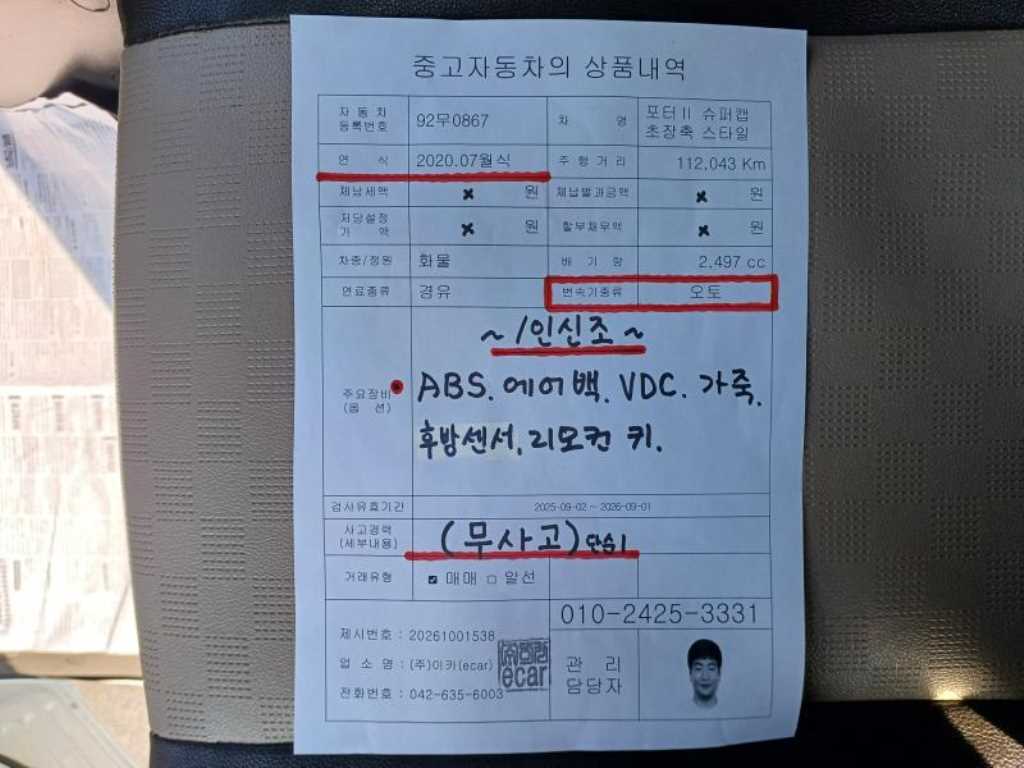 중고자동차의 상품내역
자동차 등록번호 92무0867 차 명 포터II 슈퍼캡 초장축 스타일
연 식 2020.07월식 주행거리 112,043 Km
체납세액 x 원 체납벌과금액 x 원
저당설정 가 액 x 원 할부채무액 x 원
차종/정원 화물 배 기 량 2,497 cc
연료종류 경유 변속기종류 오토
~1인신조~
주요장비 (옵 션) ABS. 에어백. VDC. 가죽.
후방센서. 리모컨 키.
검사유효기간 2025-09-02 ~ 2026-09-01
사고경력 (세부내용) (무사고)단순1
거래유형 ☑ 매매 □ 알선
010-2425-3331
제시번호 : 20261001538
업 소 명 : (주)이카(ecar)
전화번호 : 042-635-6003
ecar
관 리
담당자